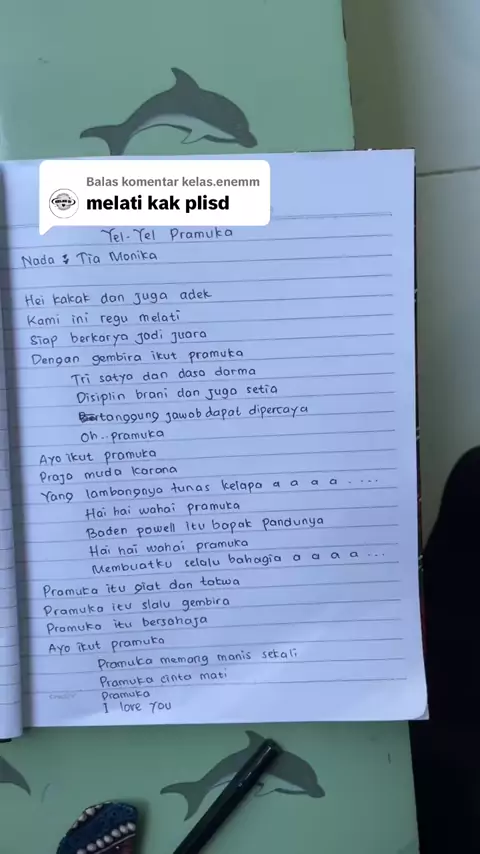 Balas komentar kelas.enemm
melati kak plisd
Yel-Yel Pramuka
Nada & Tia Monika
Hei kakak dan juga adek
Kami ini regu melati
Siap berkarya jadi juara
Dengan gembira ikut pramuka
Tri satya dan dasa darma
Disiplin brani dan juga setia
Bertanggung jawab dapat dipercaya
Oh.. pramuka
Ayo ikut pramuka
Praja muda karana
Yang lambangnya tunas kelapa a a a a .....
Hai hai wahai pramuka
Baden powell itu bapak pandunya
Hai hai wahai pramuka
Membuatku selalu bahagia a a a a ...
Pramuka itu giat dan takwa
Pramuka itu slalu gembira
Pramuka itu bersahaja
Ayo ikut pramuka
Pramuka memang manis sekali
Pramuka cinta mati
Pramuka
I love you